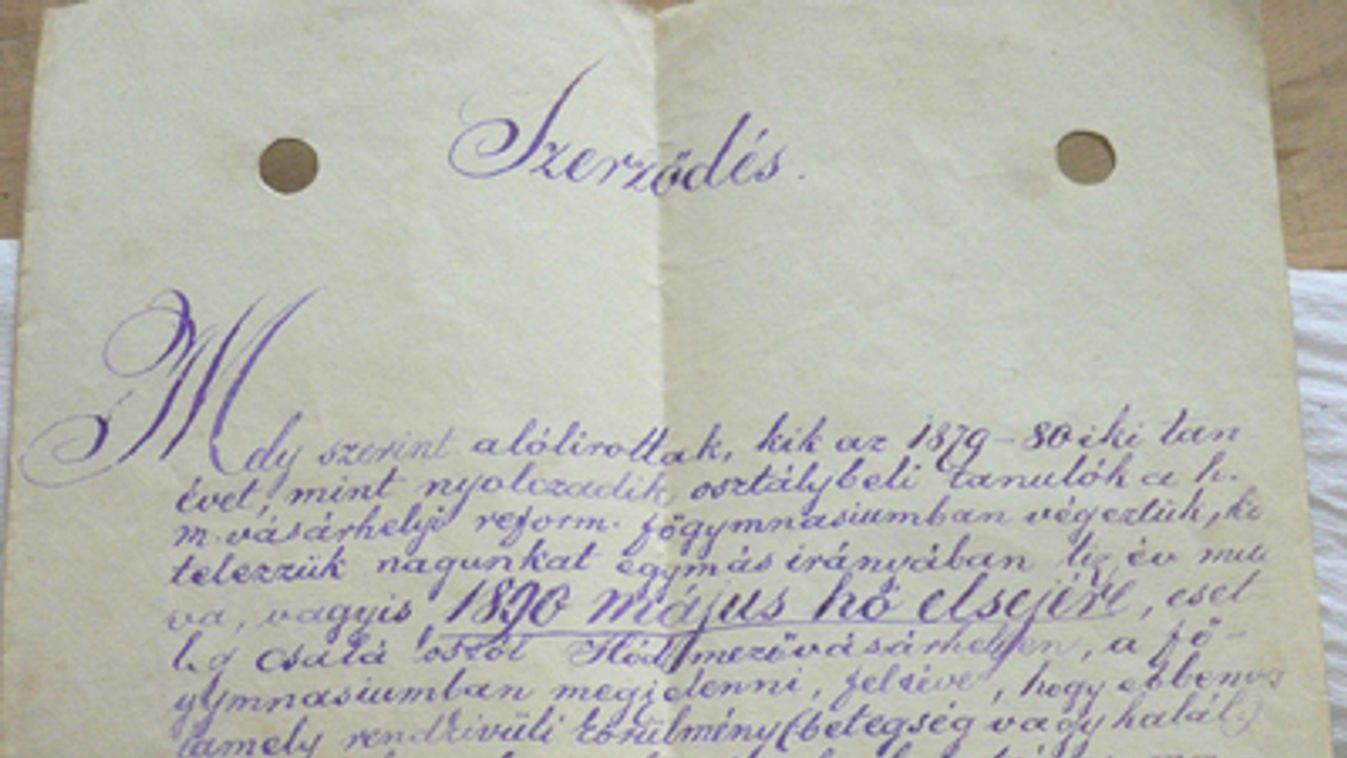 Szerződés.
Mely szerint alólirottak, kik az 1879-80 iki tan
évet, mint nyolczadik osztálybeli tanulók a h.
m. vásárhelyi reform. főgymnasiumban végeztük, kö
telezzük magunkat egymás irányában tiz év mul
va, vagyis 1890 május hó elsejére, eset
leg családostól Hódmezővásárhelyen, a fő-
gymnasiumban megjelenni, feltéve, hogy ebben va
lamely rendkivüli körülmény (betegség vagy halál.)